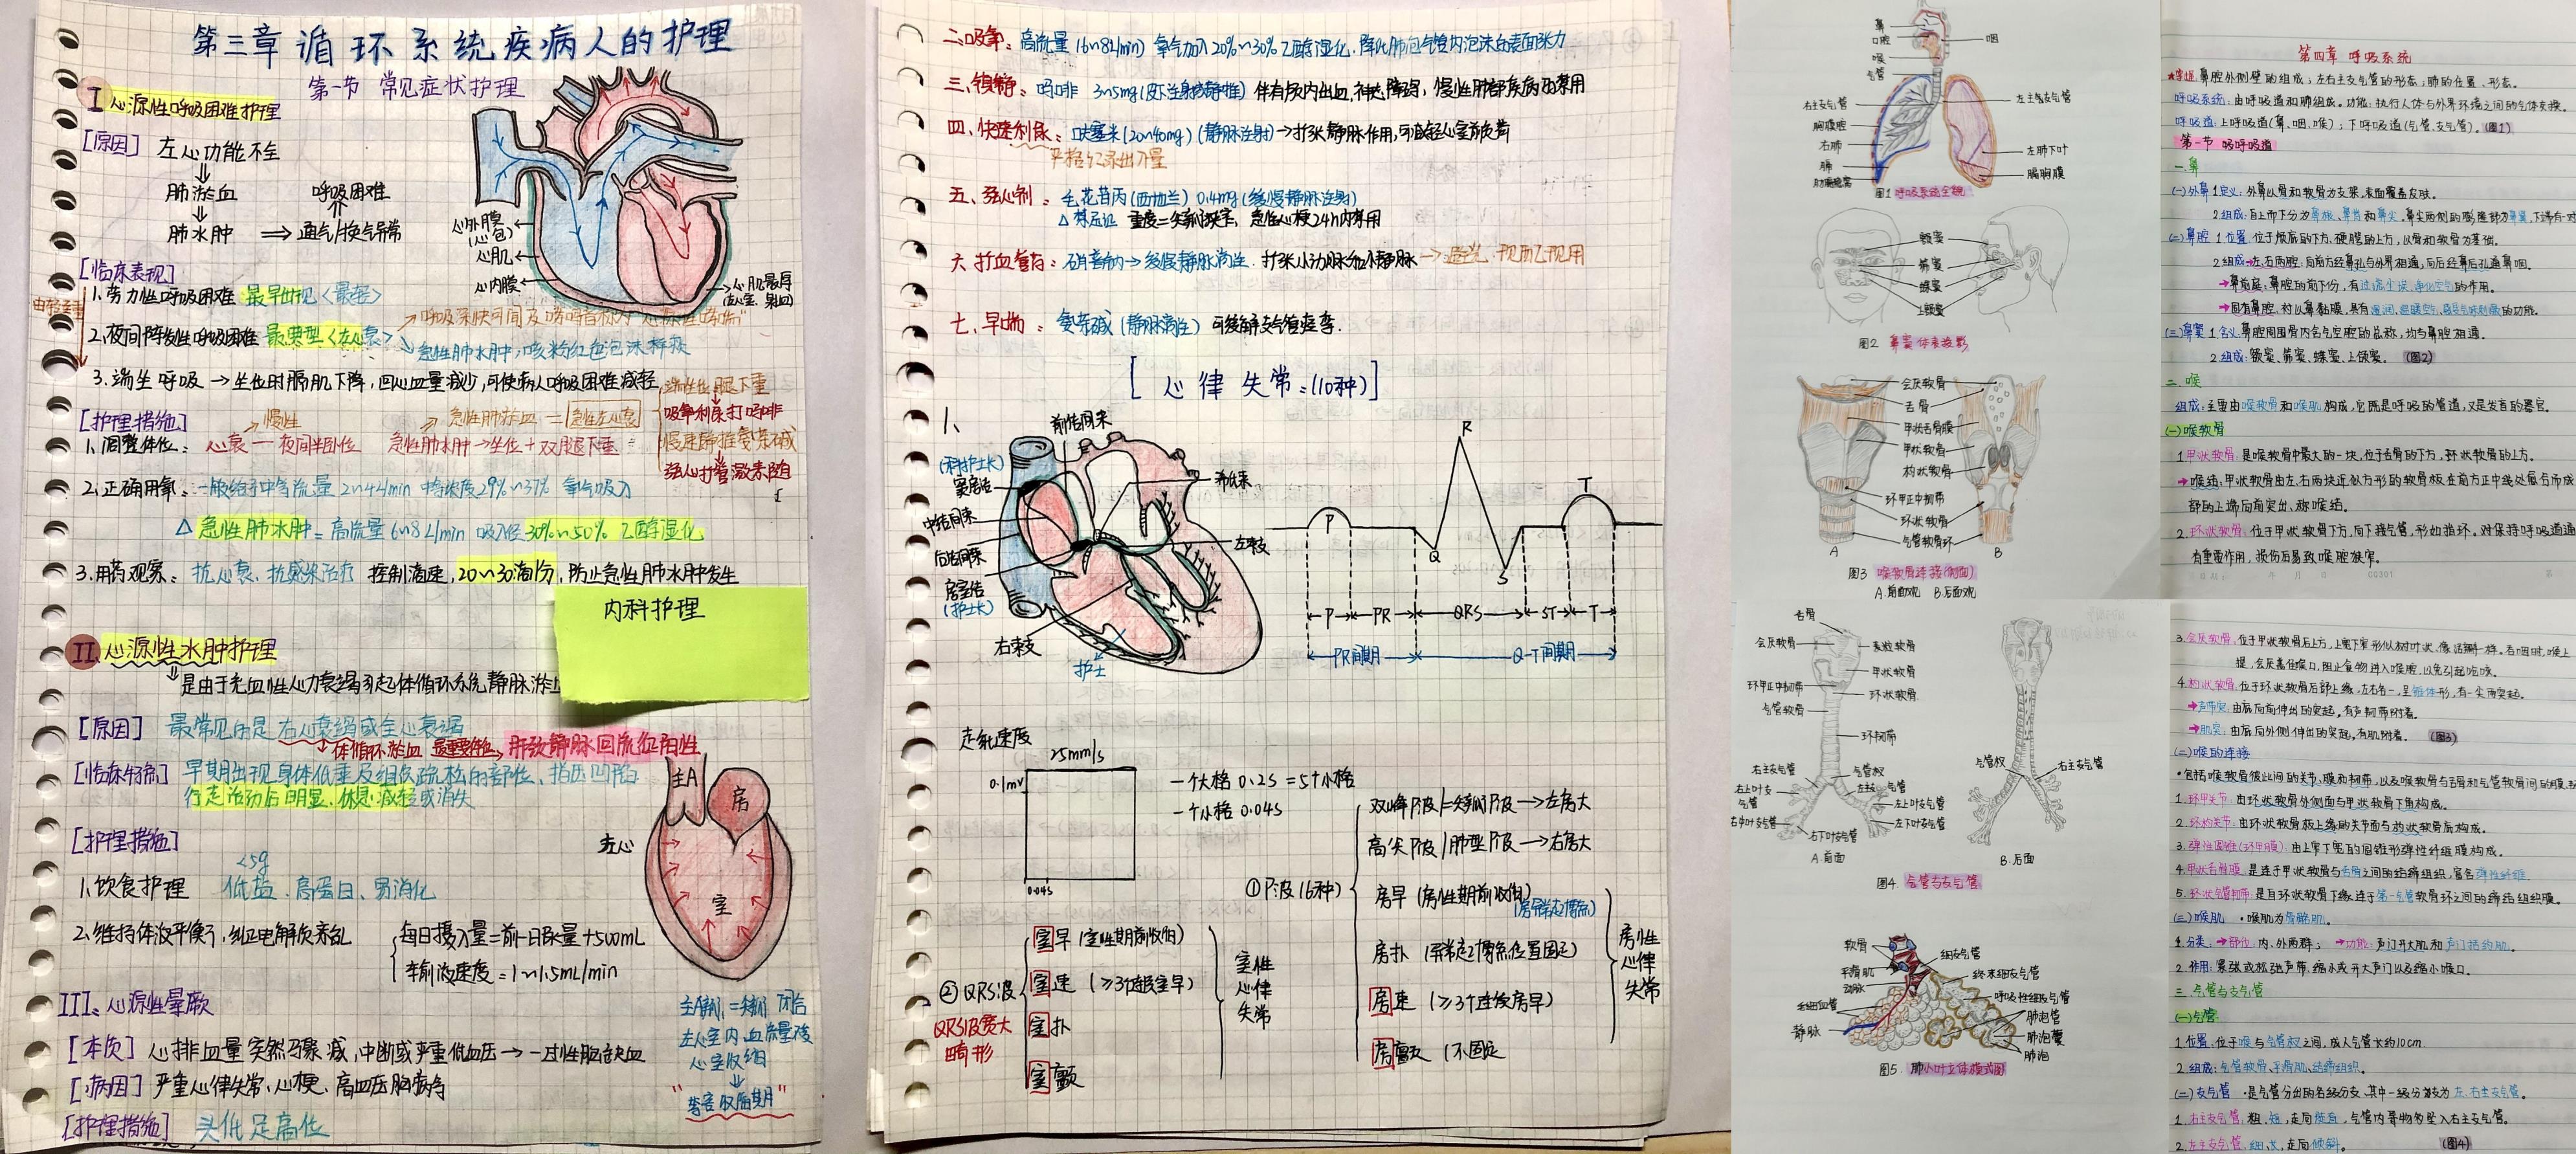 第三章 循环系统疾病人的护理
第一节 常见症状护理
I 心源性呼吸困难护理
[原因] 左心功能不全
⇓
肺淤血 呼吸困难
⇓ ⇑
肺水肿 ⇒ 通气/换气异常
心外膜
(心包)
心肌
心内膜
心肌最厚
[临床表现]
由轻至重
1.劳力性呼吸困难 最早出现<最轻>
2.夜间阵发性呼吸困难 最典型<左心衰>
急性肺水肿,咳粉红色泡沫样痰
3.端坐呼吸→坐位时膈肌下降,回心血量减少,可使病人呼吸困难减轻
[护理措施] 慢性 急性肺淤血=急性左心衰
1.调整体位: 心衰一夜间半卧位 急性肺水肿→坐位+双腿下垂
端坐位腿下垂
吸氧利尿打吗啡
慢速静推氨茶碱
强心扩管激素随
2.正确用氧:一般给予中等流量2~4L/min 中等浓度29%~37% 氧气吸入
△急性肺水肿=高流量6~8L/min 吸入经30%~50%乙醇湿化
3.用药观察:抗心衰、抗感染治疗 控制滴速,20~30滴/分,防止急性肺水肿发生
内科护理
II、心源性水肿护理
⇓是由于充血性心力衰竭引起体循环系统静脉淤血
[原因] 最常见的是右心衰竭或全心衰竭
体循环淤血 最重要体征 肝颈静脉回流征阳性
早期出现身体低垂及组织疏松的部位、指压凹陷
行走活动后明显、休息减轻或消失
主A
房
左心
室
[护理措施]
<5g
1.饮食护理 低盐、高蛋白、易消化
2.维持体液平衡,纠正电解质紊乱
每日摄入量=前一日尿量+500mL
输液速度=1~1.5mL/min
III、心源性晕厥
[本质] 心排血量突然骤减,中断或严重低血压→一过性脑缺血
[病因] 严重心律失常、心梗、高血压脑病等
[护理措施] 头低足高位
闭合
左心室内血流量不变
心室收缩
⇓
"等容收缩期"
二.吸氧:高流量(6~8L/min) 氧气加入20%~30%乙醇湿化.降低肺泡气管内泡沫的表面张力
三.镇静:吗啡 3~5mg(皮下注射或静推) 伴有颅内出血,神志障碍,慢性肺部疾病的禁用
四、快速利尿:呋塞米(20~40mg)(静脉注射)→扩张静脉作用,可减轻心室前负荷
严格记录出入量
五、强心剂:毛花苷丙(西地兰)0.4mg(缓慢静脉注射)
△禁忌证 重度二尖瓣狭窄,急性心梗24h内禁用
六.扩血管药:硝普钠→缓慢静脉滴注.扩张小动脉和小静脉→避光.现用现配
七.平喘:氨茶碱(静脉滴注)可缓解支气管痉挛.
[心律失常:(10种)]
1、
前结间束
(科护士长)
窦房结
希氏束
中结间束
后结间束
左束支
房室结
(护士长)
右束支
护士
P Q R S T
P PR QRS ST T
PR间期 Q-T间期
走纸速度
25mm/s
0.1mv
0.04s
一个大格0.2s=5个小格
一个小格0.04s
①P波(6种)
双峰P波/二尖瓣P波→左房大
高尖P波/肺型P波→右房大
房早(房性期前收缩)
房扑(异常起搏点位置固定)
房速(≥3个连续房早)
房颤(不固定
房性心律失常
②QRS波
QRS波宽大畸形
室早(室性期前收缩)
室速(≥3个连续室早)
室扑
室颤
室性心律失常
鼻
口腔
咽
喉
气管
右主支气管
左主支气管
胸膜腔
右肺
左肺下叶
膈
膈胸膜
图1 呼吸系统全貌
额窦
筛窦
蝶窦
上颌窦
图2 鼻窦体表投影
会厌软骨
舌骨
甲状舌骨膜
甲状软骨
杓状软骨
环甲正中韧带
环状软骨
气管软骨环
A B
图3 喉软骨连接(侧面)
A.前面观 B.后面观
舌骨
会厌软骨
甲状软骨
环甲正中韧带
环状软骨
气管软骨
环韧带
右主支气管
气管杈
右上叶支气管
左上叶支气管
右中叶支气管
左下叶支气管
右下叶支气管
气管杈
右主支气管
A.前面
B.后面
图4. 气管与支气管
软骨
平滑肌
动脉
细支气管
终末细支气管
呼吸性细支气管
毛细血管
肺泡管
静脉
肺泡囊
肺泡
图5. 肺小叶立体模式图
第四章 呼吸系统
★掌握:鼻腔外侧壁的组成;左右主支气管的形态;肺的位置、形态。
呼吸系统:由呼吸道和肺组成。功能:执行人体与外界环境之间的气体交换。
呼吸道:上呼吸道(鼻、咽、喉);下呼吸道(气管、支气管)。(图1)
第一节 呼吸道
一.鼻
(一)外鼻 1.定义:外鼻以骨和软骨为支架,表面覆盖皮肤。
2.组成:自上而下分为鼻根、鼻背和鼻尖。鼻尖两侧的膨隆部为鼻翼,下端有一对
(二)鼻腔 1.位置:位于颅底的下方、硬腭的上方,以骨和软骨为基础。
2.组成→左、右两腔:向前方经鼻孔与外界相通,向后经鼻后孔通鼻咽。
→鼻前庭:鼻腔的前下份,有过滤尘埃、净化空气的作用。
→固有鼻腔:衬以鼻黏膜,具有
(三)鼻窦 1.含义:鼻腔周围骨内含气空腔的总称,均与鼻腔相通。
2.组成:额窦、筛窦、蝶窦、上颌窦。(图2)
二.喉
组成:主要由喉软骨和喉肌构成,它既是呼吸的管道,又是发音的器官。
(一)喉软骨
1.甲状软骨:是喉软骨中最大的一块,位于舌骨的下方,环状软骨的上方。
→喉结:甲状软骨由左、右两块近似方形的软骨板在前方正中线处愈合而成
部的上端向前突出,称喉结。
2.环状软骨:位于甲状软骨下方,向下接气管,形如指环。对保持呼吸道通
有重要作用,损伤后易致喉腔狭窄。
年 月 日 00301
3.会厌软骨:位于甲状软骨后上方,上宽下窄形似树叶状,像活瓣一样。吞咽时,喉上
提,会厌盖住喉口,阻止食物进入喉腔,以免引起吃咳。
4.杓状软骨:位于环状软骨后部上缘,左右各一,呈锥体形,有一尖两突起。
→声带突:由底向前伸出的突起,有声韧带附着。
→肌突:由底向外侧伸出的突起,有肌附着。(图3)
(二)喉的连接
•包括喉软骨彼此间的关节、膜和韧带,以及喉软骨与舌骨和气管软骨间的膜
1.环甲关节:由环状软骨外侧面与甲状软骨下角构成。
2.环杓关节:由环状软骨板上缘的关节面与杓状软骨底构成。
3.弹性圆锥(环甲膜):由上窄下宽的圆锥形弹性纤维膜构成。
4.甲状舌骨膜:是连于甲状软骨与舌骨之间的结缔组织,富含弹性纤维。
5.环状气管韧带:是自环状软骨下缘连于第一气管软骨环之间的缔结组织膜。
(三)喉肌 •喉肌为骨骼肌。
1.分类:→部位:内、外两群; →功能:声门开大肌和声门括约肌。
2.作用:紧张或松弛声带、缩小或开大声门以及缩小喉口。
三.气管与支气管
(一)气管
1.位置:位于喉与气管杈之间,成人气管长约10cm.
2.组成:气管软骨、平滑肌、结缔组织。
(二)支气管 •是气管分出的各级分支,其中一级分支为左、右主支气管。
1.右主支气管:粗、短,走向陡直,气管内异物易坠入右主支气管。
2.左主支气管:细、长,走向倾斜。 (图4)